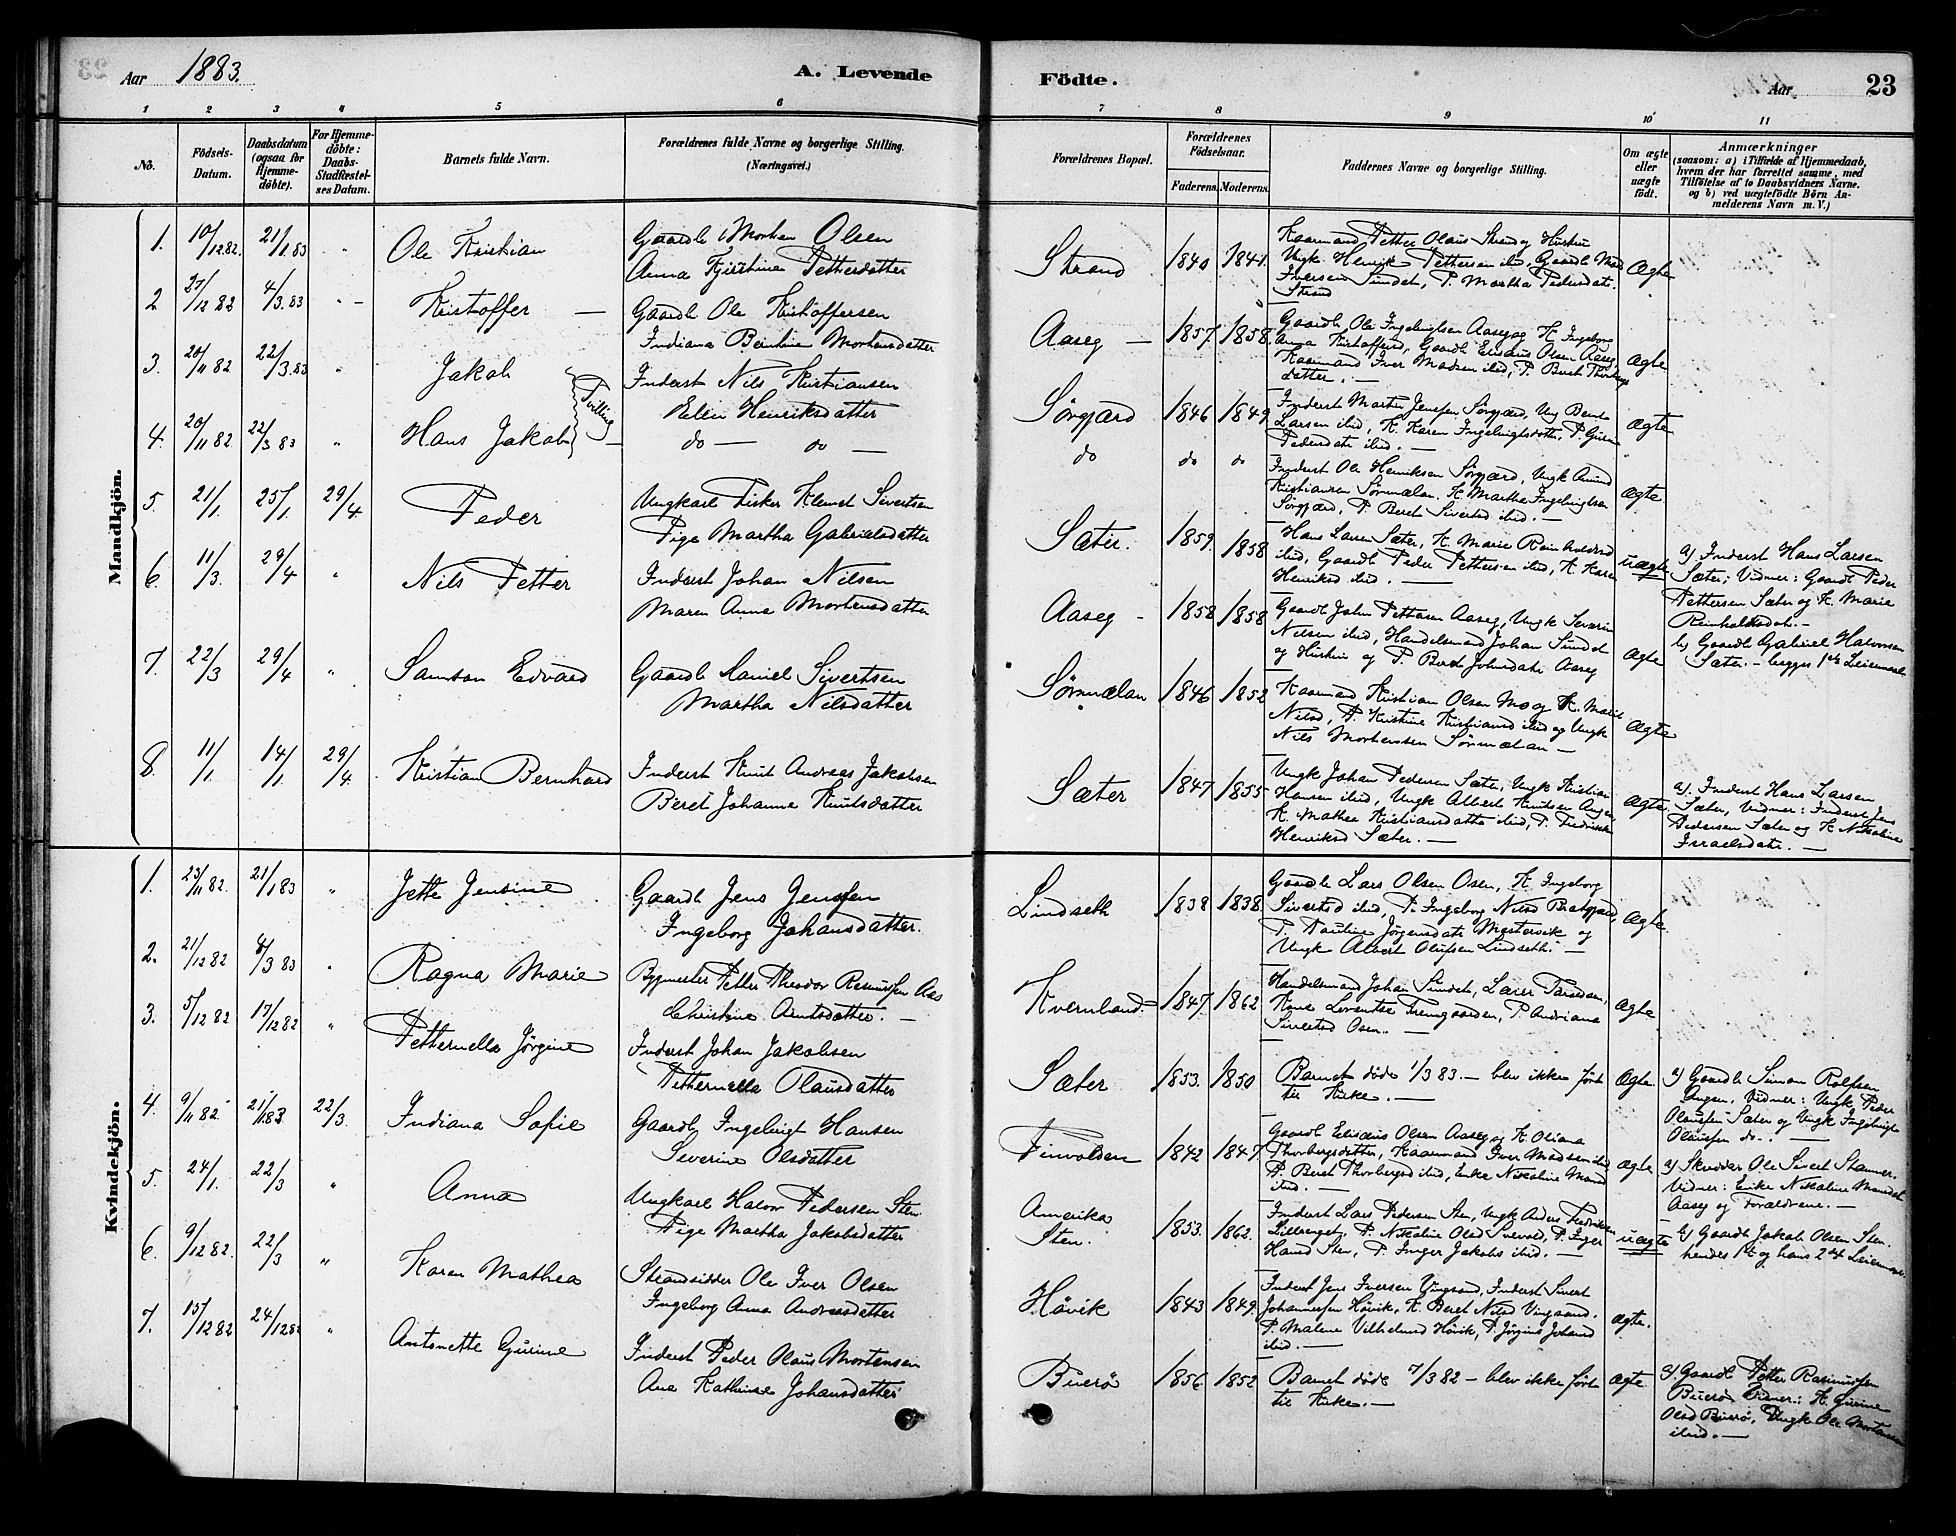 Aar 1883. A. Levende Födte. Aar 23
1 2 3 4 5 6 7 8 9 10 11
No.
Födsels-Datum.
Daabsdatum (ogsaa for Hjemme-döbte).
For Hjemme-döbte: Daabs-Stadfæstel-ses Datum.
Barnets fulde Navn.
Forældrenes fulde Navne og borgerlige Stilling. (Næringsvei.)
Forældrenes Bopæl.
Forældrenes Födselsaar.
Faderens. Moderens.
Faddernes Navne og borgerlige Stilling.
Om ægte eller uægte födt.
Anmærkninger
(saasom: a) i Tilfælde af Hjemmedaab, hvem der har forrettet samme, med Tilföielse af to Daabsvidners Navne, og b) ved uægtefödte Börn An-melderens Navn m. V.)
Mandkjön.
1. 10/12 82. 21/1 83 " Ole Kristian
Gaardb Morten Olsen
Anna Kjerstine Pettersdatter
Strand 1840 1841.
Kaarmand Petter Olaus Strand og Hustru
Ungk Henrik Pettersen ibid, Gaardb Mad
Iversen Sundet, P. Martha Pedersdatr.
Strand
Ægte
2 27/12 82 4/3. 83 " Kristoffer —
Gaardb Ole Kristoffersen
Indiana Berntine Mortensdatter
Aaseg — 1857. 1858.
Gaardb Ole Ingebrigtsen Aaseg og K. Ingeborg
Anna Kristoffersd, Gaardb Elisæus Olsen Aaseg
Kaarmand Iver Madsen ibid, P. Beret Thorbergs
datter. —
Ægte
3. 20/11 82 22/3. 83 " Jakob
Inderst Nils Kristiansen
Elen Henriksdatter
Sörgjærd 1846 1849.
Inderst Martin Jenssen Sörgjærd, Ung Bernt
Larsen ibid, K. Karen Ingebrigtsdatter, P. Gurine
Pedersdatr ibid. —
Ægte
Tvilling
4. 20/11 82 22/3 83 " Hans Jakob —
do — do —
do do do
Inderst Ole Henriksen Sörgjærd, Ungk Amund
Kristiansen Sörmælan. K. Martha Ingebrigtsen
Sörgjærd, P. Beret Sivertsd ibid. —
Ægte
5. 21/1. 25/1. 29/4. Peder
Ungkarl Fisker Klemet Sivertsen
Pige Martha Gabrielsdatter
Sæter. 1859. 1858
Hans Larsen Sæter, K. Marie Reinholdsd
ibid, Gaardb Peder Pettersen ibid, K. Karen
Henriksd ibid. —
uægte
a) Inderst Hans Larsen
Sæter; Vidner: Gaardb Peder
Pettersen Sæter og K. Marie
Reinholdsdatr. —
b) Gaardb Gabriel Halvorsen
Sæter. — begges 1ste Leiermaal
6. 11/3. 29/4 " Nils Petter
Inderst Johan Nilsen
Maren Anna Mortensdatter
Aaseg — 1858 1858
Gaardb John Pettersen Aaseg, Ungk Severin
Nilsen ibid, Handelsmand Johan Sundet
og Hustru og P. Beret Johnsdatr Aaseg
Ægte
7. 22/3 29/4 " Samson Edvard
Gaardb Daniel Sivertsen
Martha Nilsdatter
Sörmælan 1846 1852
Kaarmand Kristian Olsen Mo og K. Marit
Nilsd, P. Kristine Kristiansd ibid og Ungk
Nils Mortensen Sörmælan —
Ægte
8. 11/1. 14/1. 29/4. Kristian Bernhard
Inderst Knut Andreas Jakobsen
Beret Johanne Knutsdatter
Sæter 1847 1855
Ungk Johan Pedersen Sæter, Ungk Kristian
Hansen ibid, Ungk Albert Knutsen Angen
K. Mathea Kristiansdatter ibid, P. Fredrikke
Henriksd Sæter. —
Ægte.
a). Inderst Hans Larsen
Sæter, Vidner: Inderst Jens
Pedersen Sæter og K Nikoline
Israelsdatr. —
Kvindekjön.
1. 23/11 82. 21/1 83 " Jette Jensine
Gaardb Jens Jenssen
Ingeborg Johansdatter.
Lindseth 1838 1838.
Gaardb Lars Olsen Osen, K. Ingeborg
Sivertsd ibid, P. Ingeborg Nilsd Bratgjærd,
P. Pauline Jörgensdatr Mestervik og
Ungk Albert Olufsen Lindseth. —
Ægte.
2. 21/12 82 8/3 83 " Ragna Marie
Bygmester Petter Theodor Rasmussen Aas
Christine Arntsdatter. —
Kvernland. 1847. 1862
Handelsmand Johan Sundet, Lærer Tarsdan,
Kone Lorentse Fremgaarden, P. Andriana
Sivertsd Osen. —
Ægte
3. 5/12 82 17/12 82 " Petternella Jörgine
Inderst Johan Jakobsen
Petternella Olausdatter
Sæter 1853. 1850
Barnet döde 1/3 83. — blev ikke fört
til Kirke. —
Ægte.
a) Gaardb Simon Rolfsen
Angen. Vidner: Ungk Peder
Olaussen Sæter og Ungk Ingebrigt
Olaussen do. —
4. 9/11 82. 21/1 83 22/3. Indiana Sofie
Gaardb Ingebrigt Hansen
Severine Olsdatter
Finvolden 1842 1847.
Gaardb Elisæus Olsen Aaseg og K. Oliana
Thorbergsdatter, Kaarmand Iver Madsen ibid
P. Beret Thorbergsd ibid, Enke Nikoline Monsd
ibid. —
Ægte
a) Skrædder Ole Sivert Stamnes.
Vidner: Enke Nikoline Monsdatr
Aaseg og Forældrene. —
5. 24/1. 22/3 " Anna
Ungkarl Halvor Pedersen Sten
Pige Martha Jakobsdatter
Amerika
Sten. 1853. 1862.
Inderst Lars Pedersen Sten, Ungk Anders Fredriksen
Lillevæget, P. Nikoline Olsd Svevold, P. Inger
Hansd Sten, P. Inger Jakobs ibid. —
uægte
b) Gaardb Jakob Olsen Sten.
hendes 1ste og hans 2det Leiermaal.
6. 9/12 82. 22/3 " Karen Mathea
Strandsidder Ole Iver Olsen
Ingeborg Anna Andreasdatter
Hövik 1843 1849.
Inderst Jens Iversen Vingsand, Inderst Sivert
Johannessen Hövik, K. Beret Nilsd Vingsand.
P. Malene Vilhelmsd Hövik, P. Jörgine Johansd
ibid. —
Ægte.
7. 15/12 82 24/12 82 " Antonette Gurine
Inderst Peder Olaus Mortensen
Ane Kathrine Johansdatter
Buerö 1856 1852
Barnet döde 7/3 82 — blev ikke fört
til Kirke. —
Ægte
a). Gaardb Petter Rasmussen
Buerö Vidner: K. Gurine
Olsd Buerö, Ungk Ole Mortensen
ibid. —